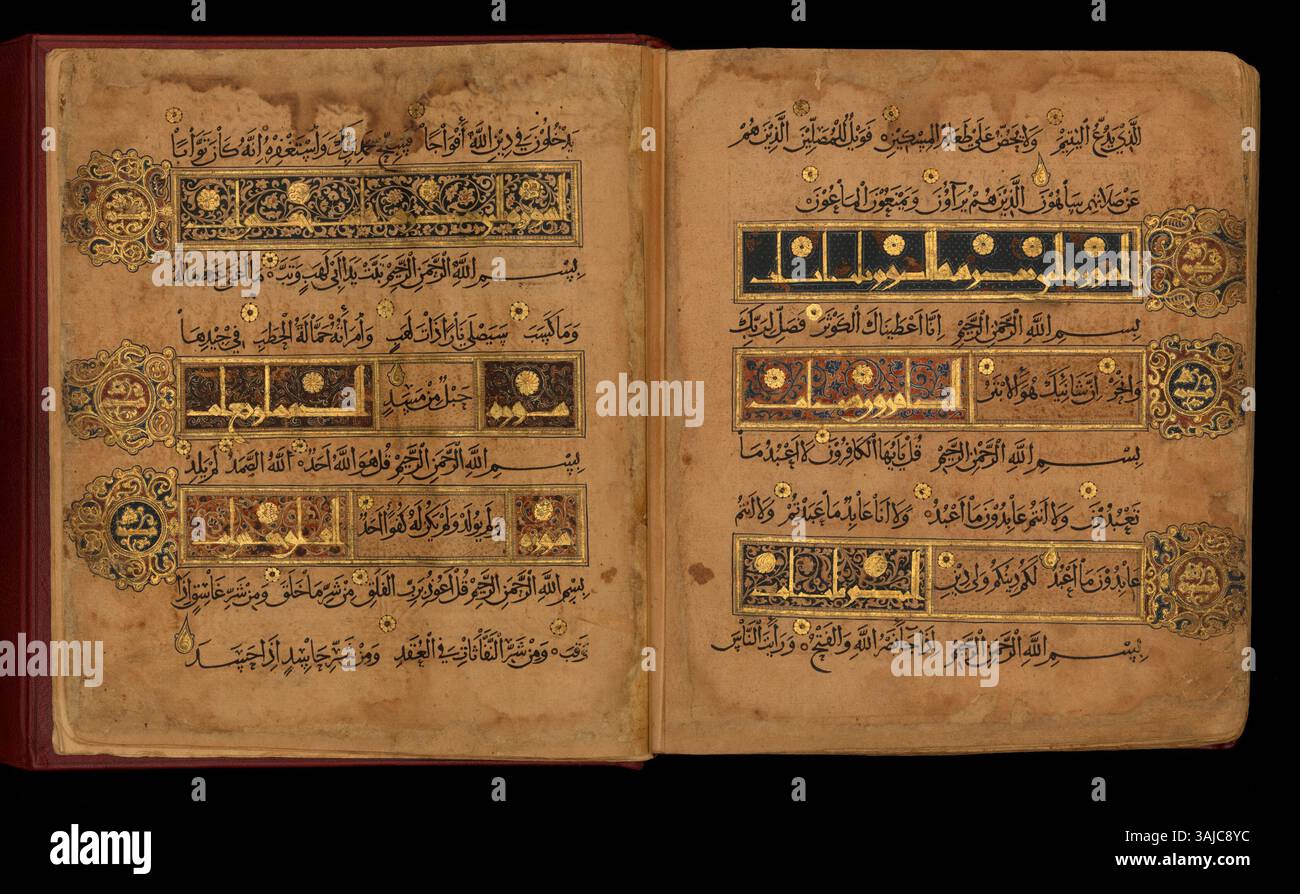 الذي يدع اليتيم ولا يحض على طعام المسكين فويل للمصلين الذين هم
عن صلاتهم ساهون الذين هم يراؤن ويمنعون الماعون
بسم الله الرحمن الرحيم انا اعطيناك الكوثر فصل لربك
وانحر ان شانئك هو الابتر
بسم الله الرحمن الرحيم قل يايها الكافرون لا اعبد ما
تعبدون ولا انتم عابدون ما اعبد ولا انا عابد ما عبدتم ولا انتم
عابدون ما اعبد لكم دينكم ولي دين
بسم الله الرحمن الرحيم اذا جاء نصر الله والفتح ورأيت الناس
يدخلون في دين الله أفواجا فسبح بحمد ربك واستغفره انه كان توابا
بسم الله الرحمن الرحيم تبت يدا ابي لهب وتب ما اغنى عنه ماله
وما كسب سيصلى نارا ذات لهب وامرأته حمالة الحطب في جيدها
سورة حبل من مسد
بسم الله الرحمن الرحيم قل هو الله أحد الله الصمد لم يلد
سورة ولم يولد ولم يكن له كفوا أحد
بسم الله الرحمن الرحيم قل أعوذ برب الفلق من شر ما خلق ومن شر غاسق اذا
وقب ومن شر النفاثات في العقد ومن شر حاسد اذا حسد
alamy
3AJC8YC